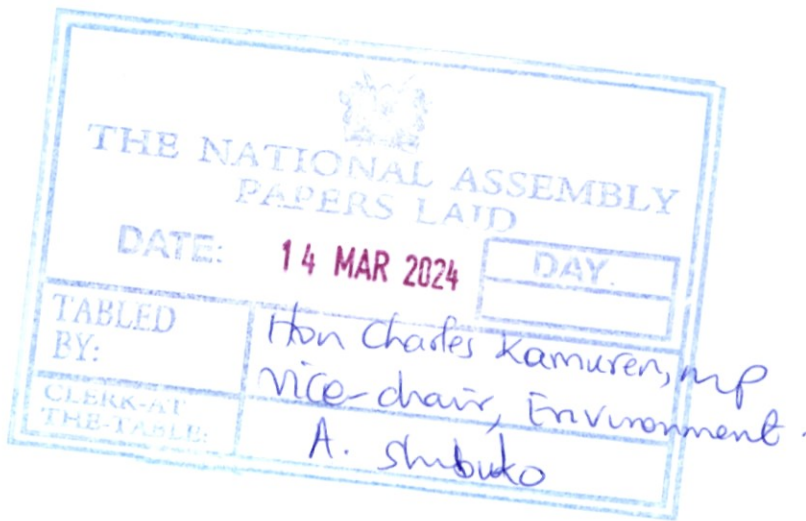 THE NATIONAL ASSEMBLY
PAPERS LAID
DATE: 14 MAR 2024 DAY.
TABLED BY: Hon Charles Kamuren, MP
Vice-chair, Environment.
CLERK-AT THE-TABLE: A. Shibuko